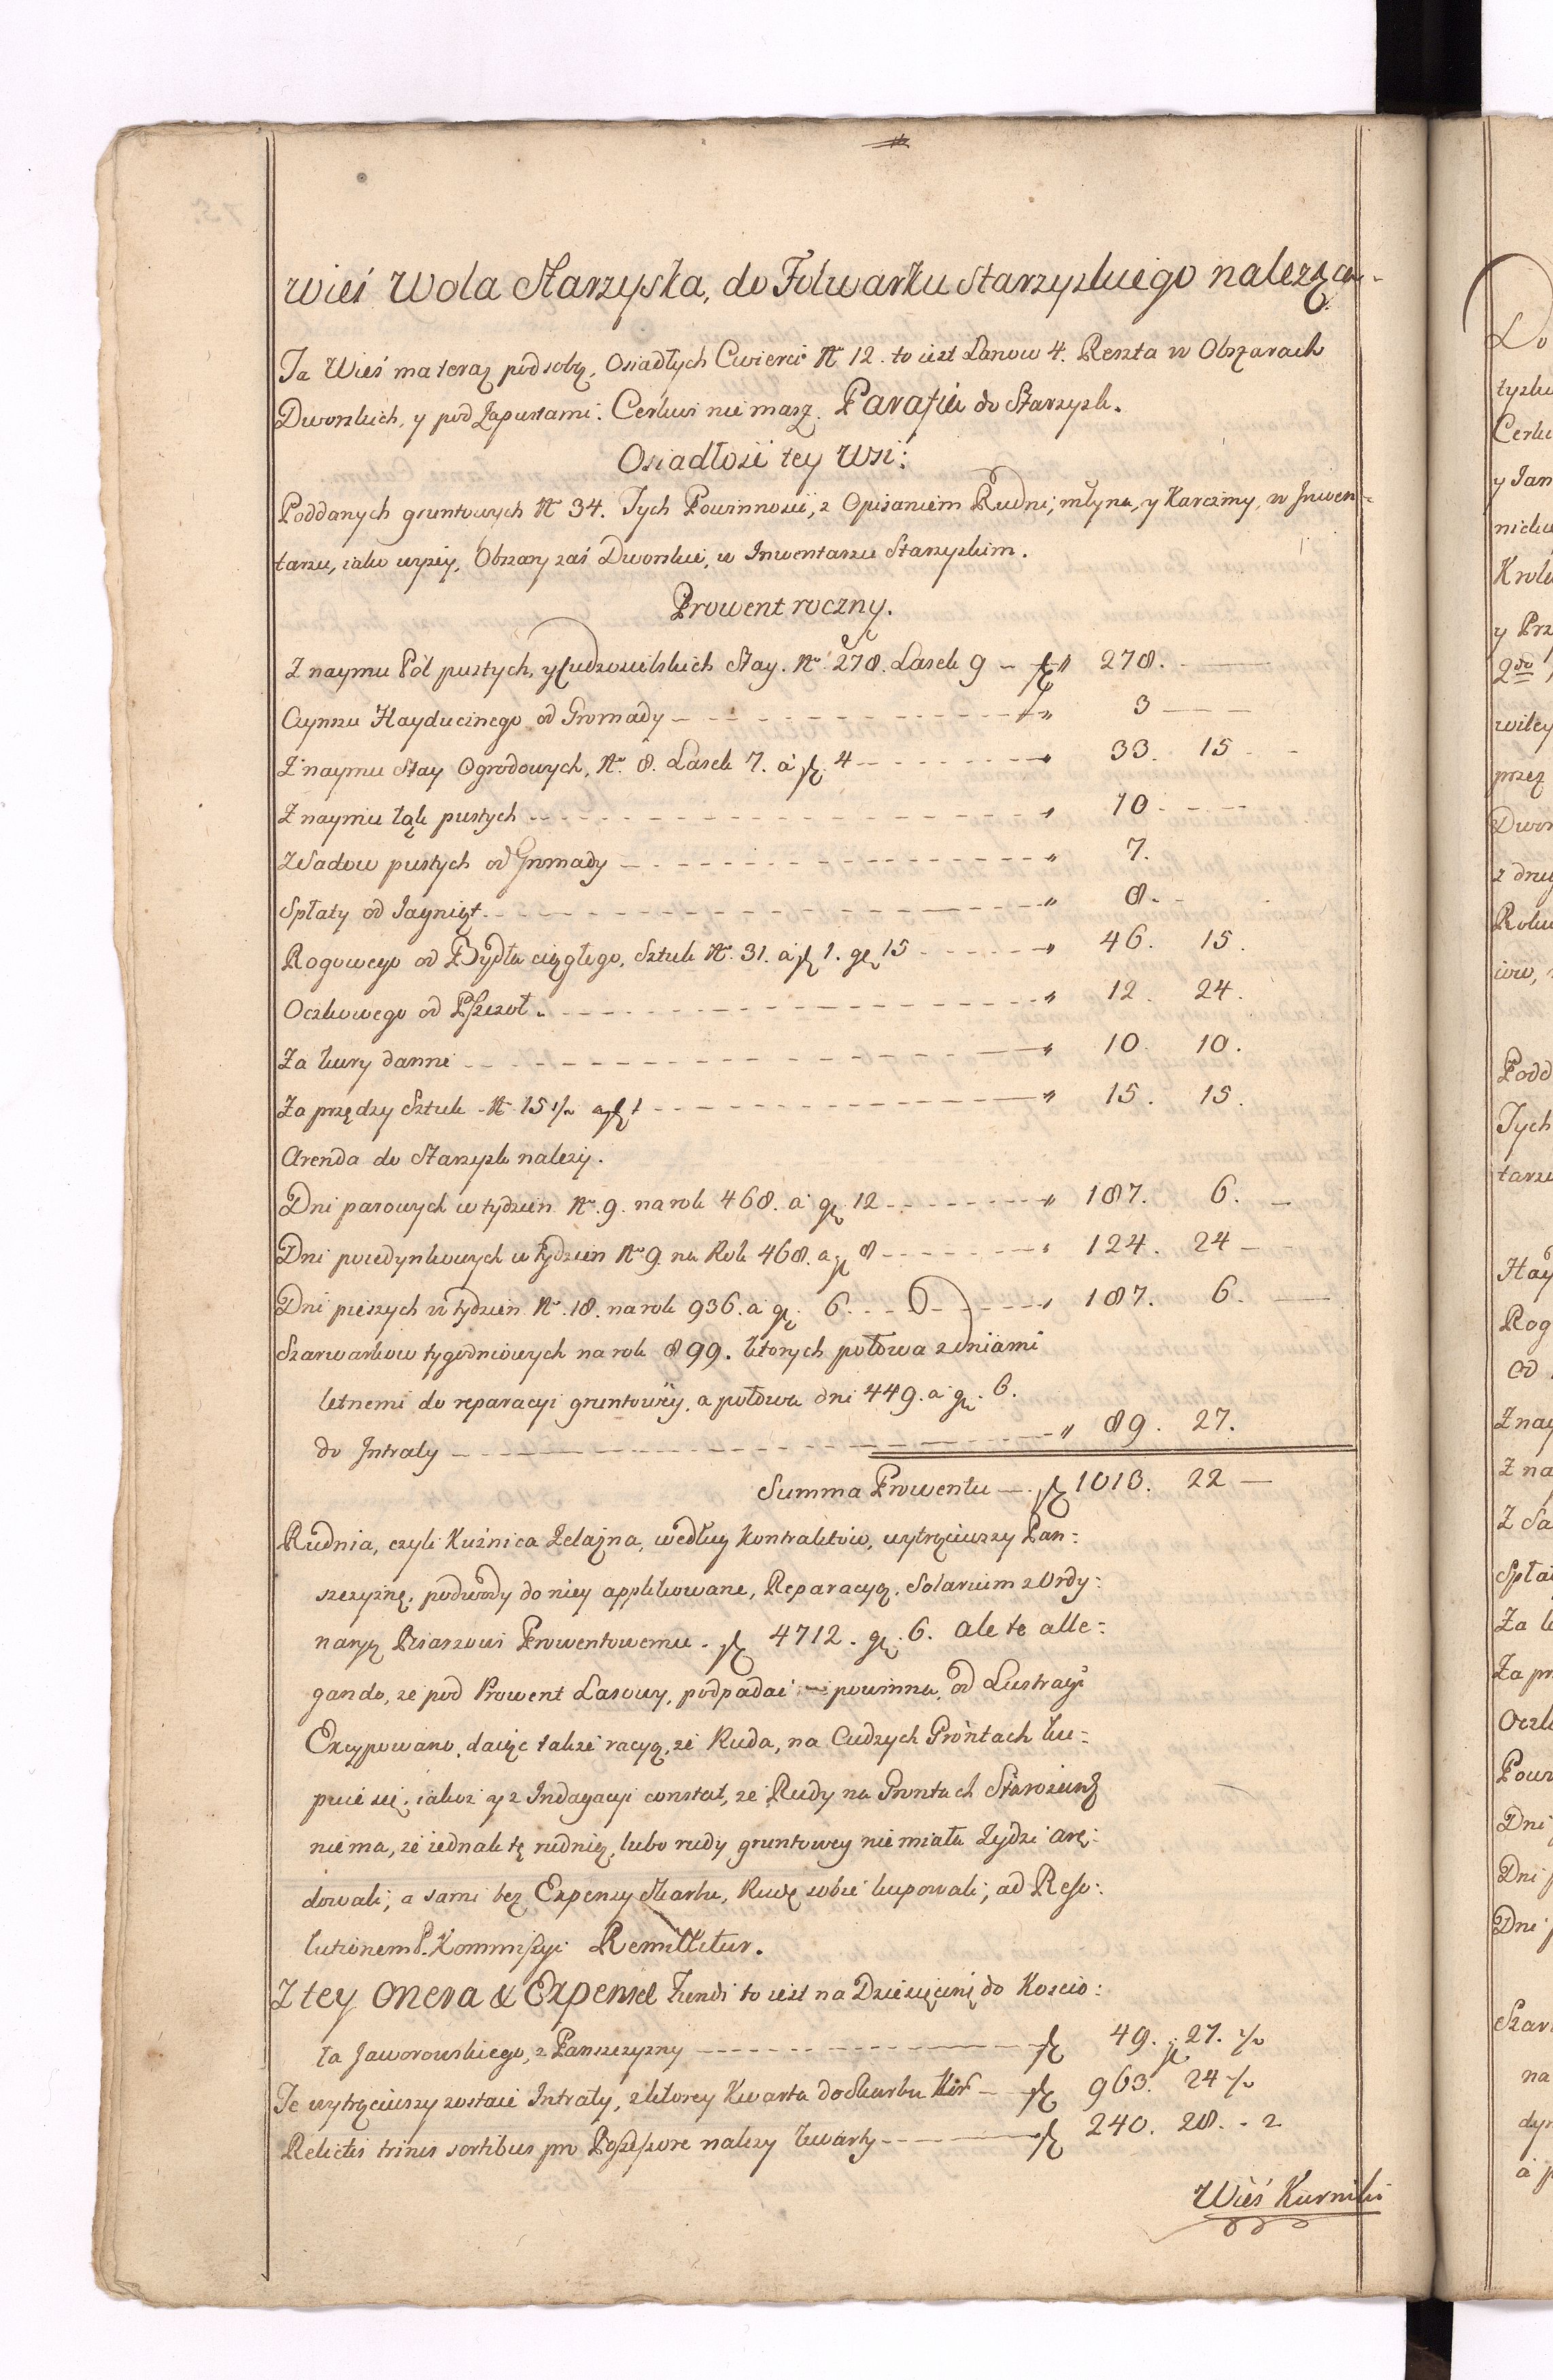 Wieś Wola Starzyska, do Folwarku Starzyskiego należąca.
Ta Wieś ma teraz pod sobą, Osiadłych Cwierci Nro 12. to iest Łanow 4. Reszta w Obszarach
Dworskich, y pod Zapustami. Cerkwi nie masz. Parafia do Starzysk.
Osiadłość tey Wsi:
Poddanych gruntowych Nro 34. Tych Powinności, z Opisaniem Rudni, młyna, y Karczmy, w Inwen=
tarzu, iako wyżey, Obszary zaś Dworskie, w Inwentarzu Starzyskim.
Prowent roczny.
Z naymu Pól pustych, y Cudzosielskich Stay. Nro 278. Lasek 9 - fl „ 278. -
Czynszu Hayducinego od Gromady - „ 3 -
Z naymu Stay Ogrodowych, Nro 8. Lasek 7. a fl. 4 - „ 33. 15 -
Z naymu łąk pustych - „ 10 -
Z Sadow pustych od Gromady - „ 7.
Spłaty od Jagniąt. - „ 8. -
Rogowego od Bydła ciągłego, Sztuk Nro 31. a fl 1. gr 15 - „ 46. 15.
Oczkowego od Pszczoł - „ 12. 24.
Za kury danne - „ 10. 10.
Za przędzy Sztuk Nro 15 1/2 a fl 1 - „ 15. 15.
Arenda do Starzysk należy.
Dni parowych w tydzień Nro 9. na rok 468. a gr 12 - „ 187. 6. -
Dni poiedynkowych w tydzień Nro 9. na Rok 468. a gr 8 - „ 124. 24 -
Dni pieszych w tydzień Nro 18. na rok 936. a gr. 6. - „ 187. 6. -
Szarwarkow tygodniowych na rok 899. ktorych połowa z dniami
letnemi do reparacyi gruntowey, a połowa dni 449. a gr. 6.
do Intraty - „ 89. 27.
Summa Prowentu - fl 1013. 22 -
Rudnia, czyli Kuźnica Żelazna, według Kontraktow, wytrąciwszy Pan:
szczyznę, podwody do niey applikowane, Reparacyą, Solarium z Ordy:
naryą Pisarzowi Prowentowemu. fl 4712. gr. 6. ale te alle:
gando, że pod Prowent Lasowy, podpadać powinna, od Lustracyi
Excypowano, daiąc także racyą, że Ruda, na Cudzych Gróntach ku:
puie się, iakoż y z Indagacyi constat, że Rudy na Gruntach Starostwa
niema, że iednak tę rudnią, lubo rudy gruntowey nie miała Żydzi arę:
dowali, a sami bez Expensy Skarbu, Rudę sobie kupowali, ad Reso:
lutionem P. Kommissyi Remittitur.
Z tey Onera & Expensæ Fundi to iest na Dziesięcinę do Koscio:
ła Jaworowskiego, z Panszczyzny - fl 49. gr 27. 1/2
Te wytrąciwszy zostaie Intraty, z ktorey Kwarta do Skarbu Kor - fl 963. 24 1/2
Relictis trinis sortibus pro Possessore należy kwarty - fl 240. 28. - 2
Wieś Kurniki
Do
Cerk
y Jan
Krole
y Prz
2do
przez
Dwor
z dru
Podd
Tych
tarzu
Hay
Rog
Od
Z nay
Z na
Z Sa
Spła
Za k
Za pr
Oczk
Powr
Dni
Dni p
Dni p
Szar
na
dyn
a p